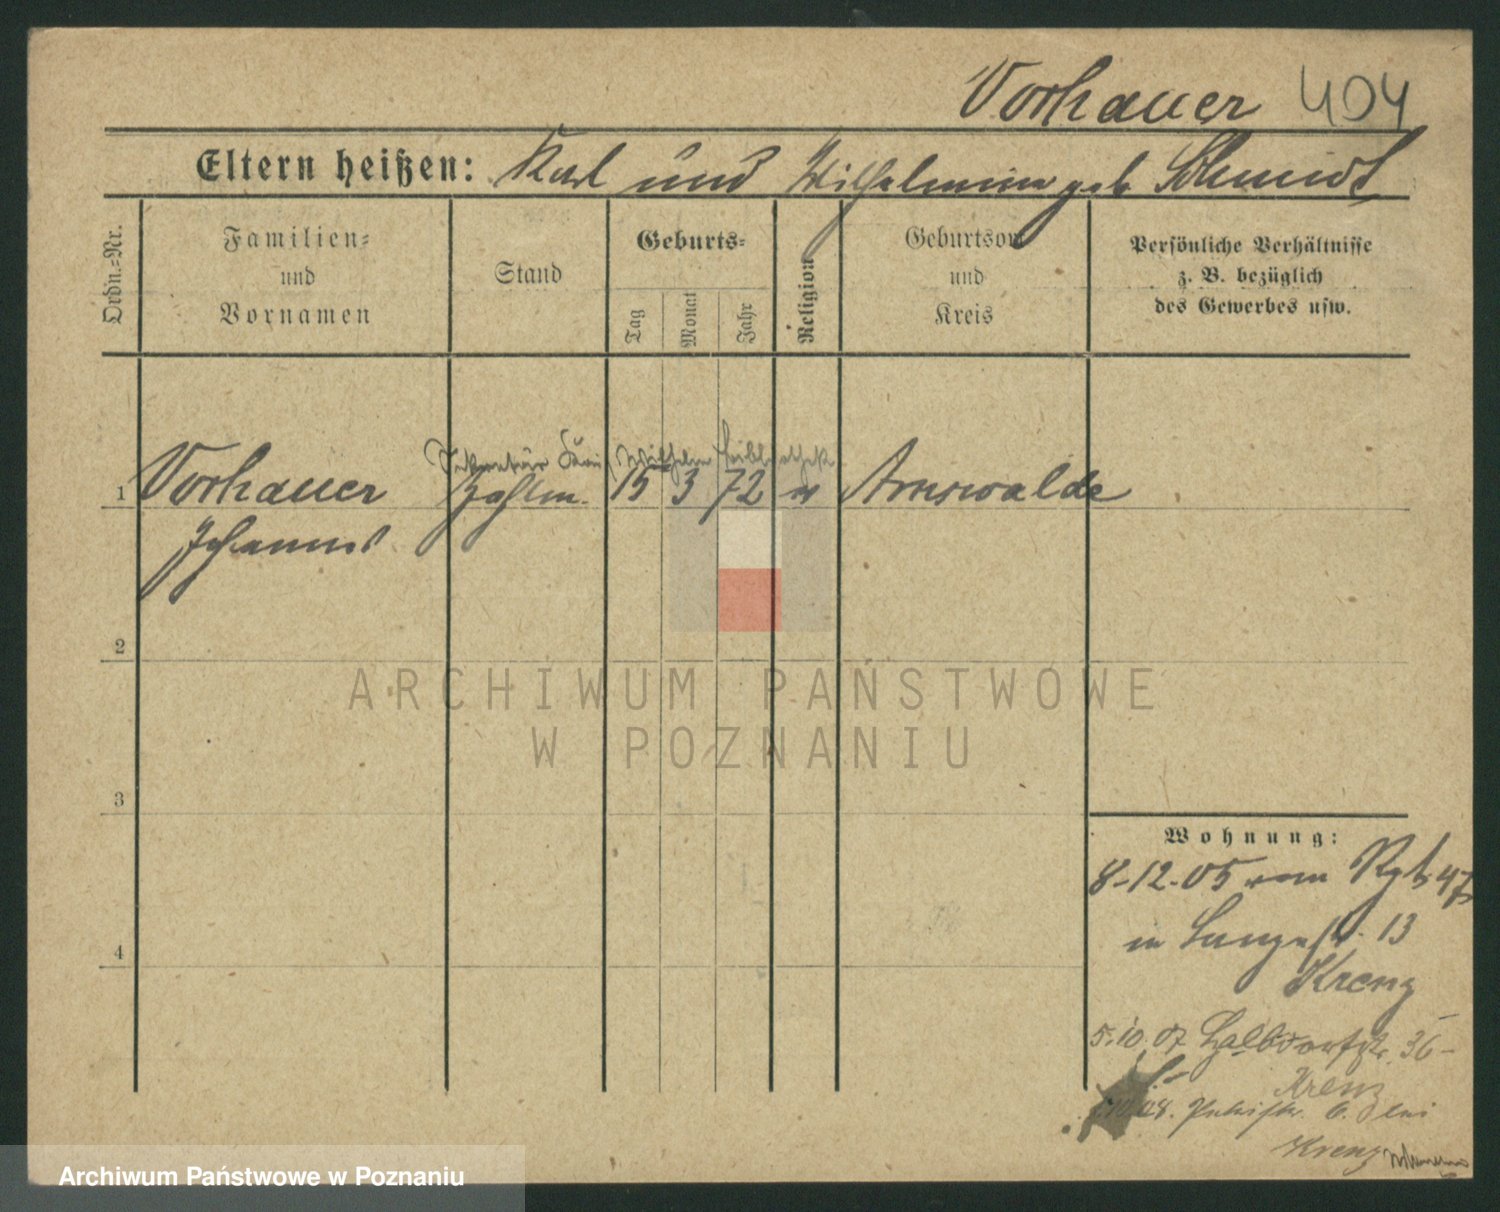 Vorhauer 404
Eltern heißen: Karl und Wilhelmine geb Schmidt
Ordn.=Nr.
Familien=
und
Vornamen
Stand
Geburts=
Tag
Monat
Jahr
Religion
Geburtsort
und
Kreis
Persönliche Verhältnisse
z. B. bezüglich
des Gewerbes usw.
Sekretär Kais. Wilhelm Bibliothek
1 Vorhauer Zahlm. 15 3 72 Arnswalde
Johannes
2
3
4
Wohnung:
8-12-05 vom Rgt 47
in Langestr. 13
Krenz
5.10.07 Halbdorfstr. 36-
Krenz
10.08. 6. bei
Krenz
ARCHIWUM PAŃSTWOWE
W POZNANIU
Archiwum Państwowe w Poznaniu